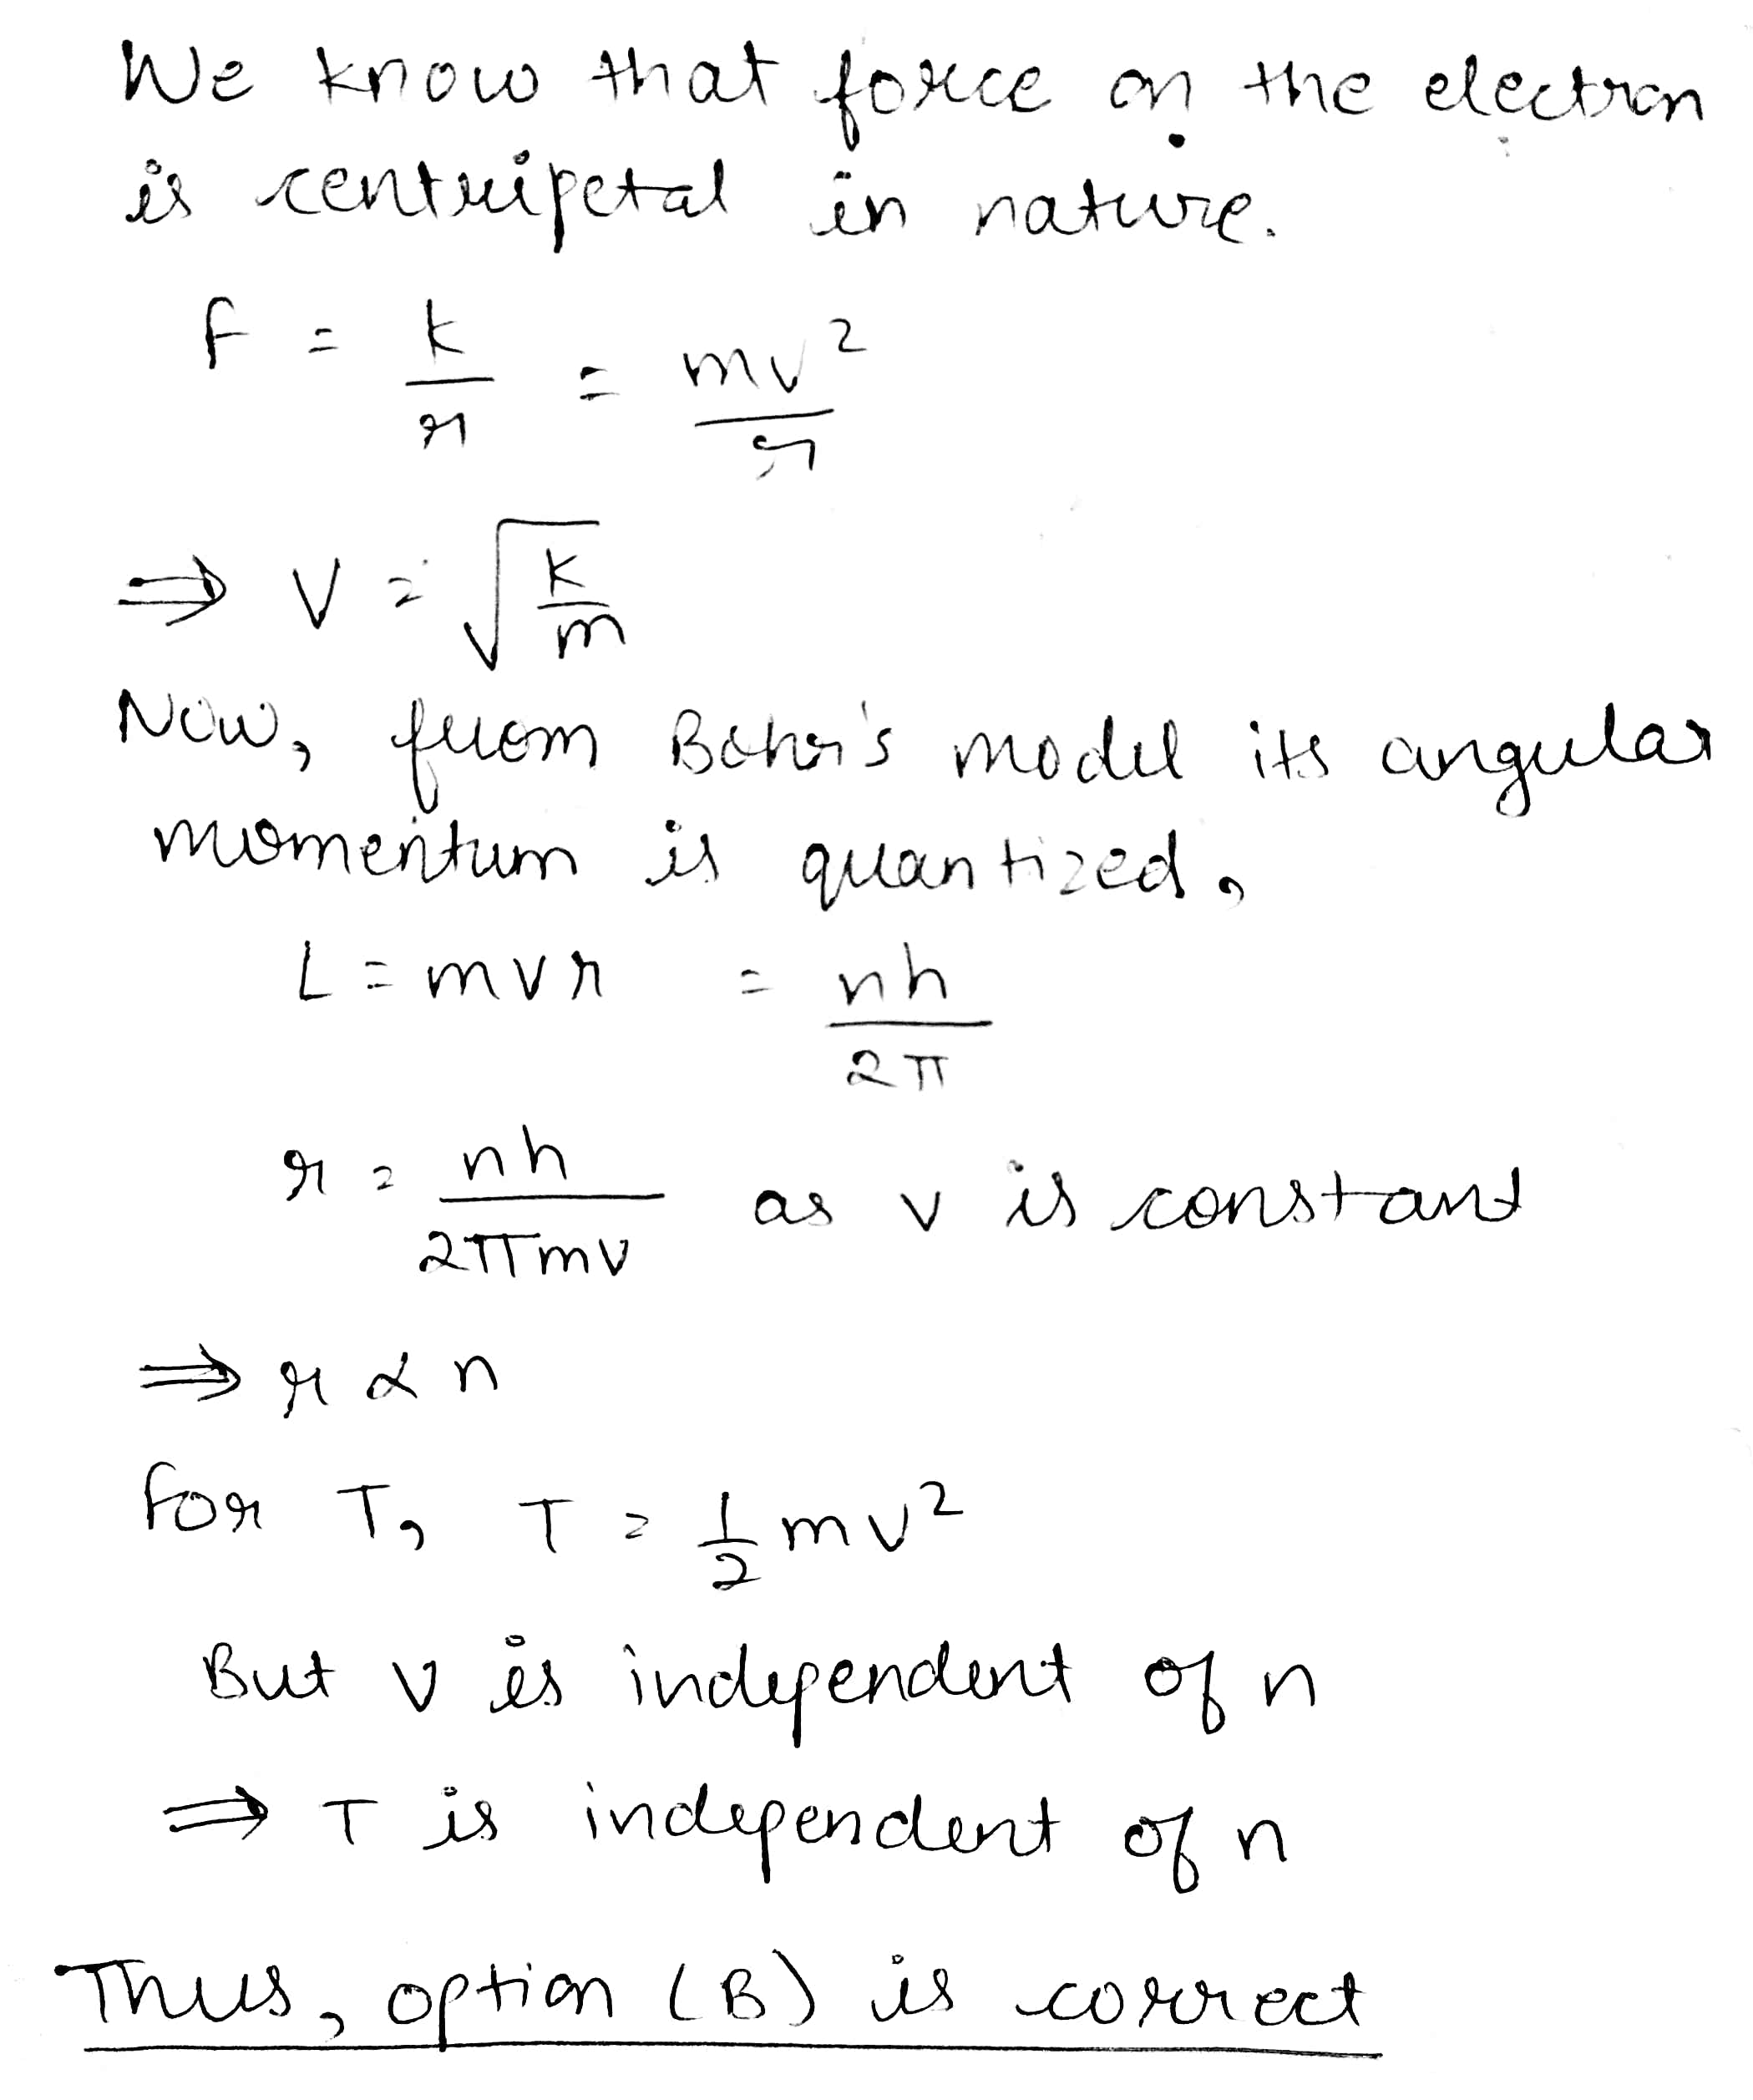 We know that force on the electron
is centripetal in nature.
F = k/r = mv²/r
⇒ V = √(k/m)
Now, from Bohr's model its angular
momentum is quantized,
L = mvr = nh/2π
r = nh/2πmv as v is constant
⇒ r ∝ n
For T, T = 1/2 mv²
But v is independent of n
⇒ T is independent of n
Thus, option (B) is correct